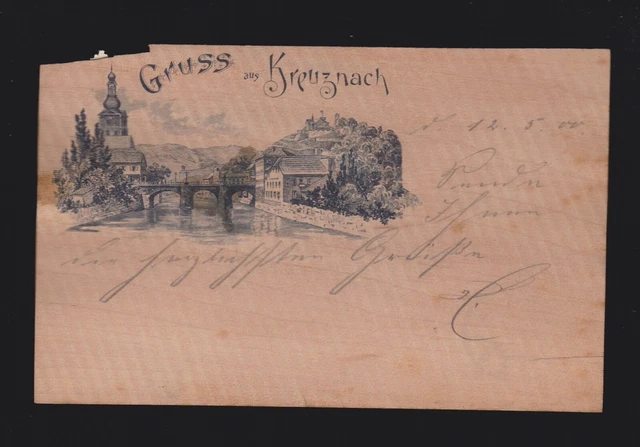 Gruss aus Kreuznach
d. 12. 5. 00
Sende
Ihnen
die herzlichsten Grüße